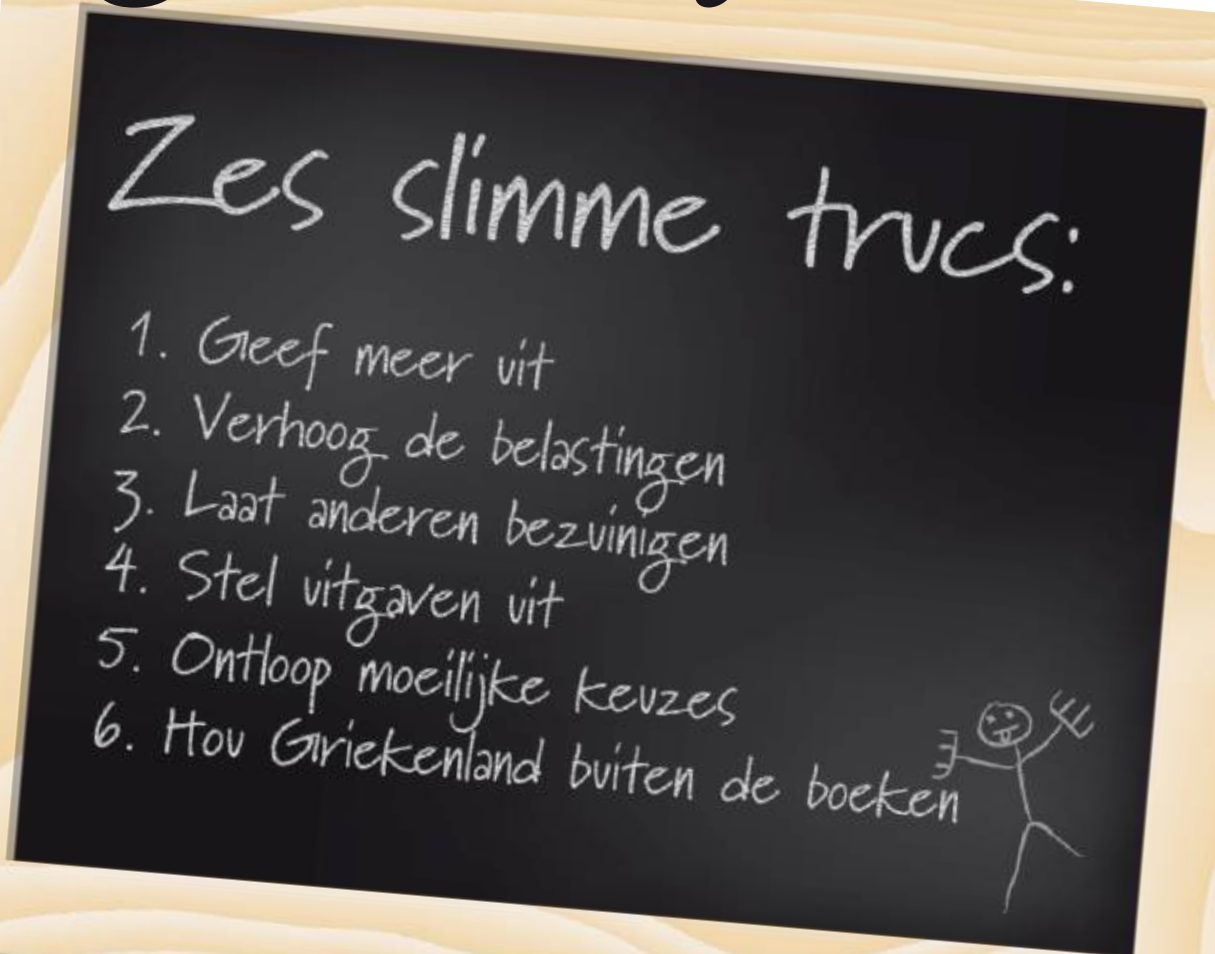 Zes slimme trucs:
1. Geef meer uit
2. Verhoog de belastingen
3. Laat anderen bezuinigen
4. Stel uitgaven uit
5. Ontloop moeilijke keuzes
6. Hou Griekenland buiten de boeken